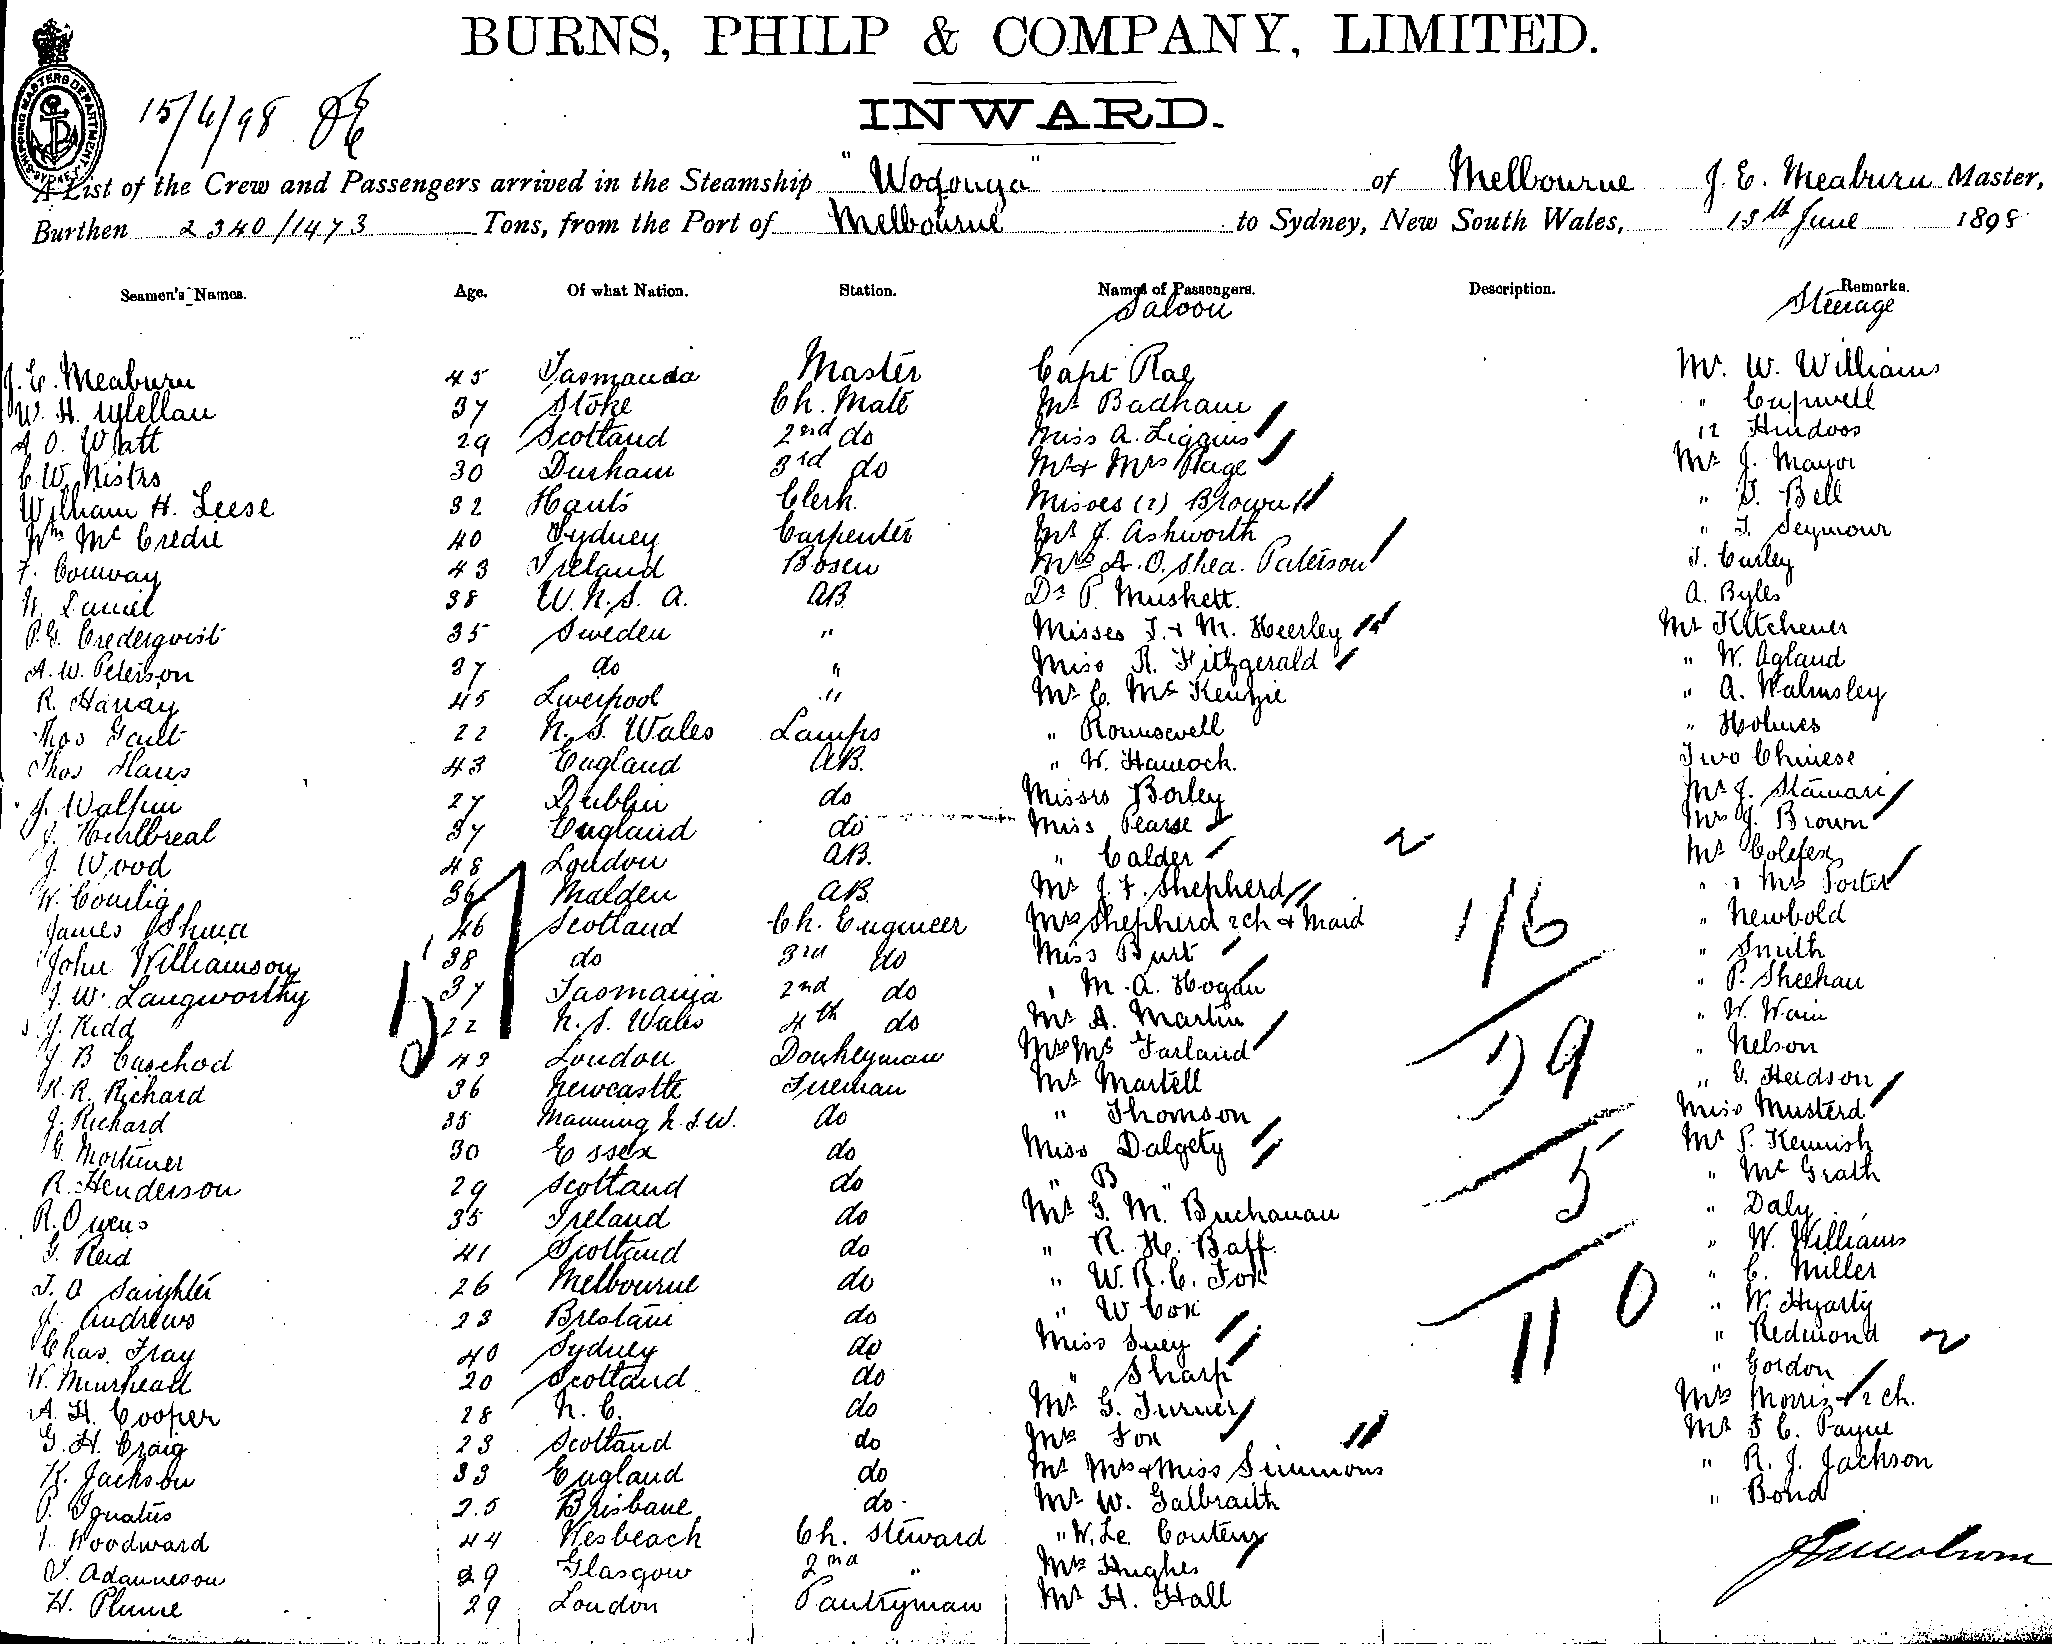 BURNS, PHILP & COMPANY, LIMITED.
INWARD.
SHIPPING MASTERS DEPARTMENT SYDNEY
15/6/98
A List of the Crew and Passengers arrived in the Steamship "Wodonga" of Melbourne J. E. Meaburn Master,
Burthen 2340/1473 Tons, from the Port of Melbourne to Sydney, New South Wales, 13th June 1898
Seamen's Names. Age. Of what Nation. Station. Names of Passengers. Description. Remarks.
Saloon Steerage
J. E. Meaburn 45 Tasmania Master Capt Rae Mr. W. Williams
W. H. 37 Stoke Ch. Mate Mr Badham " Capwell
A O. Watt 29 Scotland 2nd do Miss A. Liggins 12 Hindoos
C W. Nistrs 30 Durham 3rd do Mr & Mrs Page Mr J. Mayor
William H. Leese 32 Hants Clerk. Misses (2) Brown " Bell
Wm Mc Credie 40 Sydney Carpenter Mr J. Ashworth " Seymour
F. Conway 43 Ireland Bosen Mrs A. O. Shea. Paterson Curley
38 U.N.S. A. AB Dr P. Muskett. A. Byles
P.G. Crederqvist 35 Sweden " Misses J. & M. Heerley Mr Kitchener
A. W. Peterson 37 do " Miss R. Fitzgerald " W. Agland
R. Harray 45 Liverpool " Mr C. Mc Kenzie " A. Walmsley
Thos Gault 22 N. S. Wales Lamps " Rounsevell " Holmes
Thos Haus 43 England AB. " W. Hancock. Two Chinese
J. Walpin 27 Dublin do Missrs Borley Mr J.
J. Hurlbreal 37 England do Miss Pearse Mrs J. Brown
J. Wood 48 London AB. " Calder 2 Mr Colefex
W. 36 Malden AB. Mr J. F. Shepherd " " Mrs Porter
James 46 Scotland Ch. Engineer Mrs Shepherd 2ch & Maid " Newbold
John Williamson 38 do 3rd do Miss Burt " Smith
J. W. Langworthy 37 Tasmania 2nd do " M. A. Hogan " P. Sheehan
J. Kidd 22 N. S. Wales 4th do Mr A. Martin " W. Wain
J. B Caschod 43 London Donkeyman Mrs Mc Farland " Nelson
R. R. Richard 36 Newcastle Fireman Mr Martell " G. Heidson
J. Richard 35 Manning N.S.W. do " Thomson Miss Musterd
G. Mortimer 30 Essex do Miss Dalgety Mr P. Kennish
R. Henderson 29 Scotland do " B " " Mc Grath
R. Owens 35 Ireland do Mr G. M. Buchanan " Daly
G. Reid 41 Scotland do " R. H. Baff. " W. Williams
26 Melbourne do " W. R. C. Fox " C. Miller
J. Andrews 23 do " W Cox " W. Hyarty
Chas. Tray 40 Sydney do Miss Suey " Redmond 2
W. Muirhead 20 Scotland do " Sharp " Gordon
A. H. Cooper 28 N. C. do Mr G. Turner Mrs Morris & 2 ch.
G. H. Craig 23 Scotland do Mrs Fox Mr F C. Payne
K. Jackson 33 England do Mr Mrs & Miss Simmons " R. J. Jackson
P. Ignatius 25 Brisbane do Mr W. Galbraith " Bond
Woodward 44 Wesbeach Ch. Steward " W. Le Couteny
Adamneson 29 Glasgow 2nd " Mrs Hughes
H. Plume 29 London Pantryman Mr H. Hall
51
1/6
39
5
110